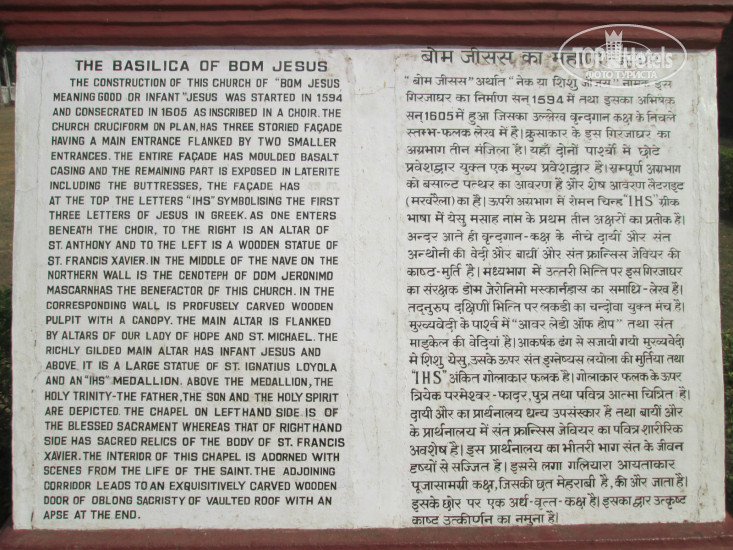 THE BASILICA OF BOM JESUS
THE CONSTRUCTION OF THIS CHURCH OF "BOM JESUS
MEANING GOOD OR INFANT "JESUS WAS STARTED IN 1594
AND CONSECRATED IN 1605 AS INSCRIBED IN A CHOIR. THE
CHURCH CRUCIFORM ON PLAN, HAS THREE STORIED FAÇADE
HAVING A MAIN ENTRANCE FLANKED BY TWO SMALLER
ENTRANCES. THE ENTIRE FAÇADE HAS MOULDED BASALT
CASING AND THE REMAINING PART IS EXPOSED IN LATERITE
INCLUDING THE BUTTRESSES, THE FAÇADE HAS
AT THE TOP THE LETTERS "IHS" SYMBOLISING THE FIRST
THREE LETTERS OF JESUS IN GREEK. AS ONE ENTERS
BENEATH THE CHOIR, TO THE RIGHT IS AN ALTAR OF
ST. ANTHONY AND TO THE LEFT IS A WOODEN STATUE OF
ST. FRANCIS XAVIER. IN THE MIDDLE OF THE NAVE ON THE
NORTHERN WALL IS THE CENOTEPH OF DOM JERONIMO
MASCARNHAS THE BENEFACTOR OF THIS CHURCH. IN THE
CORRESPONDING WALL IS PROFUSELY CARVED WOODEN
PULPIT WITH A CANOPY. THE MAIN ALTAR IS FLANKED
BY ALTARS OF OUR LADY OF HOPE AND ST. MICHAEL. THE
RICHLY GILDED MAIN ALTAR HAS INFANT JESUS AND
ABOVE IT IS A LARGE STATUE OF ST. IGNATIUS LOYOLA
AND AN "IHS" MEDALLION. ABOVE THE MEDALLION, THE
HOLY TRINITY-THE FATHER, THE SON AND THE HOLY SPIRIT
ARE DEPICTED. THE CHAPEL ON LEFT HAND SIDE IS OF
THE BLESSED SACRAMENT WHEREAS THAT OF RIGHT HAND
SIDE HAS SACRED RELICS OF THE BODY OF ST. FRANCIS
XAVIER. THE INTERIOR OF THIS CHAPEL IS ADORNED WITH
SCENES FROM THE LIFE OF THE SAINT. THE ADJOINING
CORRIDOR LEADS TO AN EXQUISITIVELY CARVED WOODEN
DOOR OF OBLONG SACRISTY OF VAULTED ROOF WITH AN
APSE AT THE END.
बोम जीसस का
"बोम जीसस" अर्थात "नेक या शिशु जीसस" नामक इस
गिरजाघर का निर्माण सन् 1594 में तथा इसका अभिषेक
सन् 1605 में हुआ जिसका उल्लेख वृन्दगान कक्ष के निचले
स्तम्भ-फलक लेख में है। क्रुसाकार के इस गिरजाघर का
अग्रभाग तीन मंजिला है। यहाँ दोनों पार्श्वो में छोटे
प्रवेशद्वार युक्त एक मुख्य प्रवेशद्वार है। सम्पूर्ण अग्रभाग
को बसाल्ट पत्थर का आवरण है और शेष आवरण लैटराइट
(मखरैला) का है। ऊपरी अग्रभाग में रोमन चिन्ह "IHS" ग्रीक
भाषा में येसु मसाह नाम के प्रथम तीन अक्षरों का प्रतीक है।
अन्दर आते ही वृन्दगान-कक्ष के नीचे दायीं और संत
अन्थोनी की वेदी और बायीं और संत फ्रान्सिस जेवियर की
काष्ठ-मुर्ति है। मध्यभाग में उत्तरी भित्ति पर इस गिरजाघर
का संरक्षक डोम जेरोनिमो मस्कार्नहास का समाधि-लेख है।
तदनुरुप दक्षिणी भित्ति पर लकडी का चन्दोवा युक्त मंच है।
मुख्यवेदी के पार्श्व में "आवर लेडी ऑफ होप" तथा संत
माइकेल की वेदियां है। आकर्षक ढंग से सजायी गयी मुख्यवेदी
में शिशु येसु, उसके ऊपर संत इग्नेष्यस लयोला की मुर्तिया तथा
"IHS" अंकित गोलाकार फलक है। गोलाकार फलक के ऊपर
त्रियेक परमेश्वर-फादर, पुत्र तथा पवित्र आत्मा चित्रित है।
दायी और का प्रार्थनालय धन्य उपसंस्कार है तथा बायीं और
के प्रार्थनालय में संत फ्रान्सिस जेवियर का पवित्र शारीरिक
अवशेष है। इस प्रार्थनालय का भीतरी भाग संत के जीवन
दृष्यों से सज्जित है। इससे लगा गलियारा आयताकार
पूजासामग्री कक्ष, जिसकी छत मेहराबी है, की और जाता है।
इसके छोर पर एक अर्ध-वृत्त-कक्ष है। इसका द्वार उत्कृष्ट
काष्ट उत्कीर्णन का नमुना है।
TopHotels
ФОТО ТУРИСТА